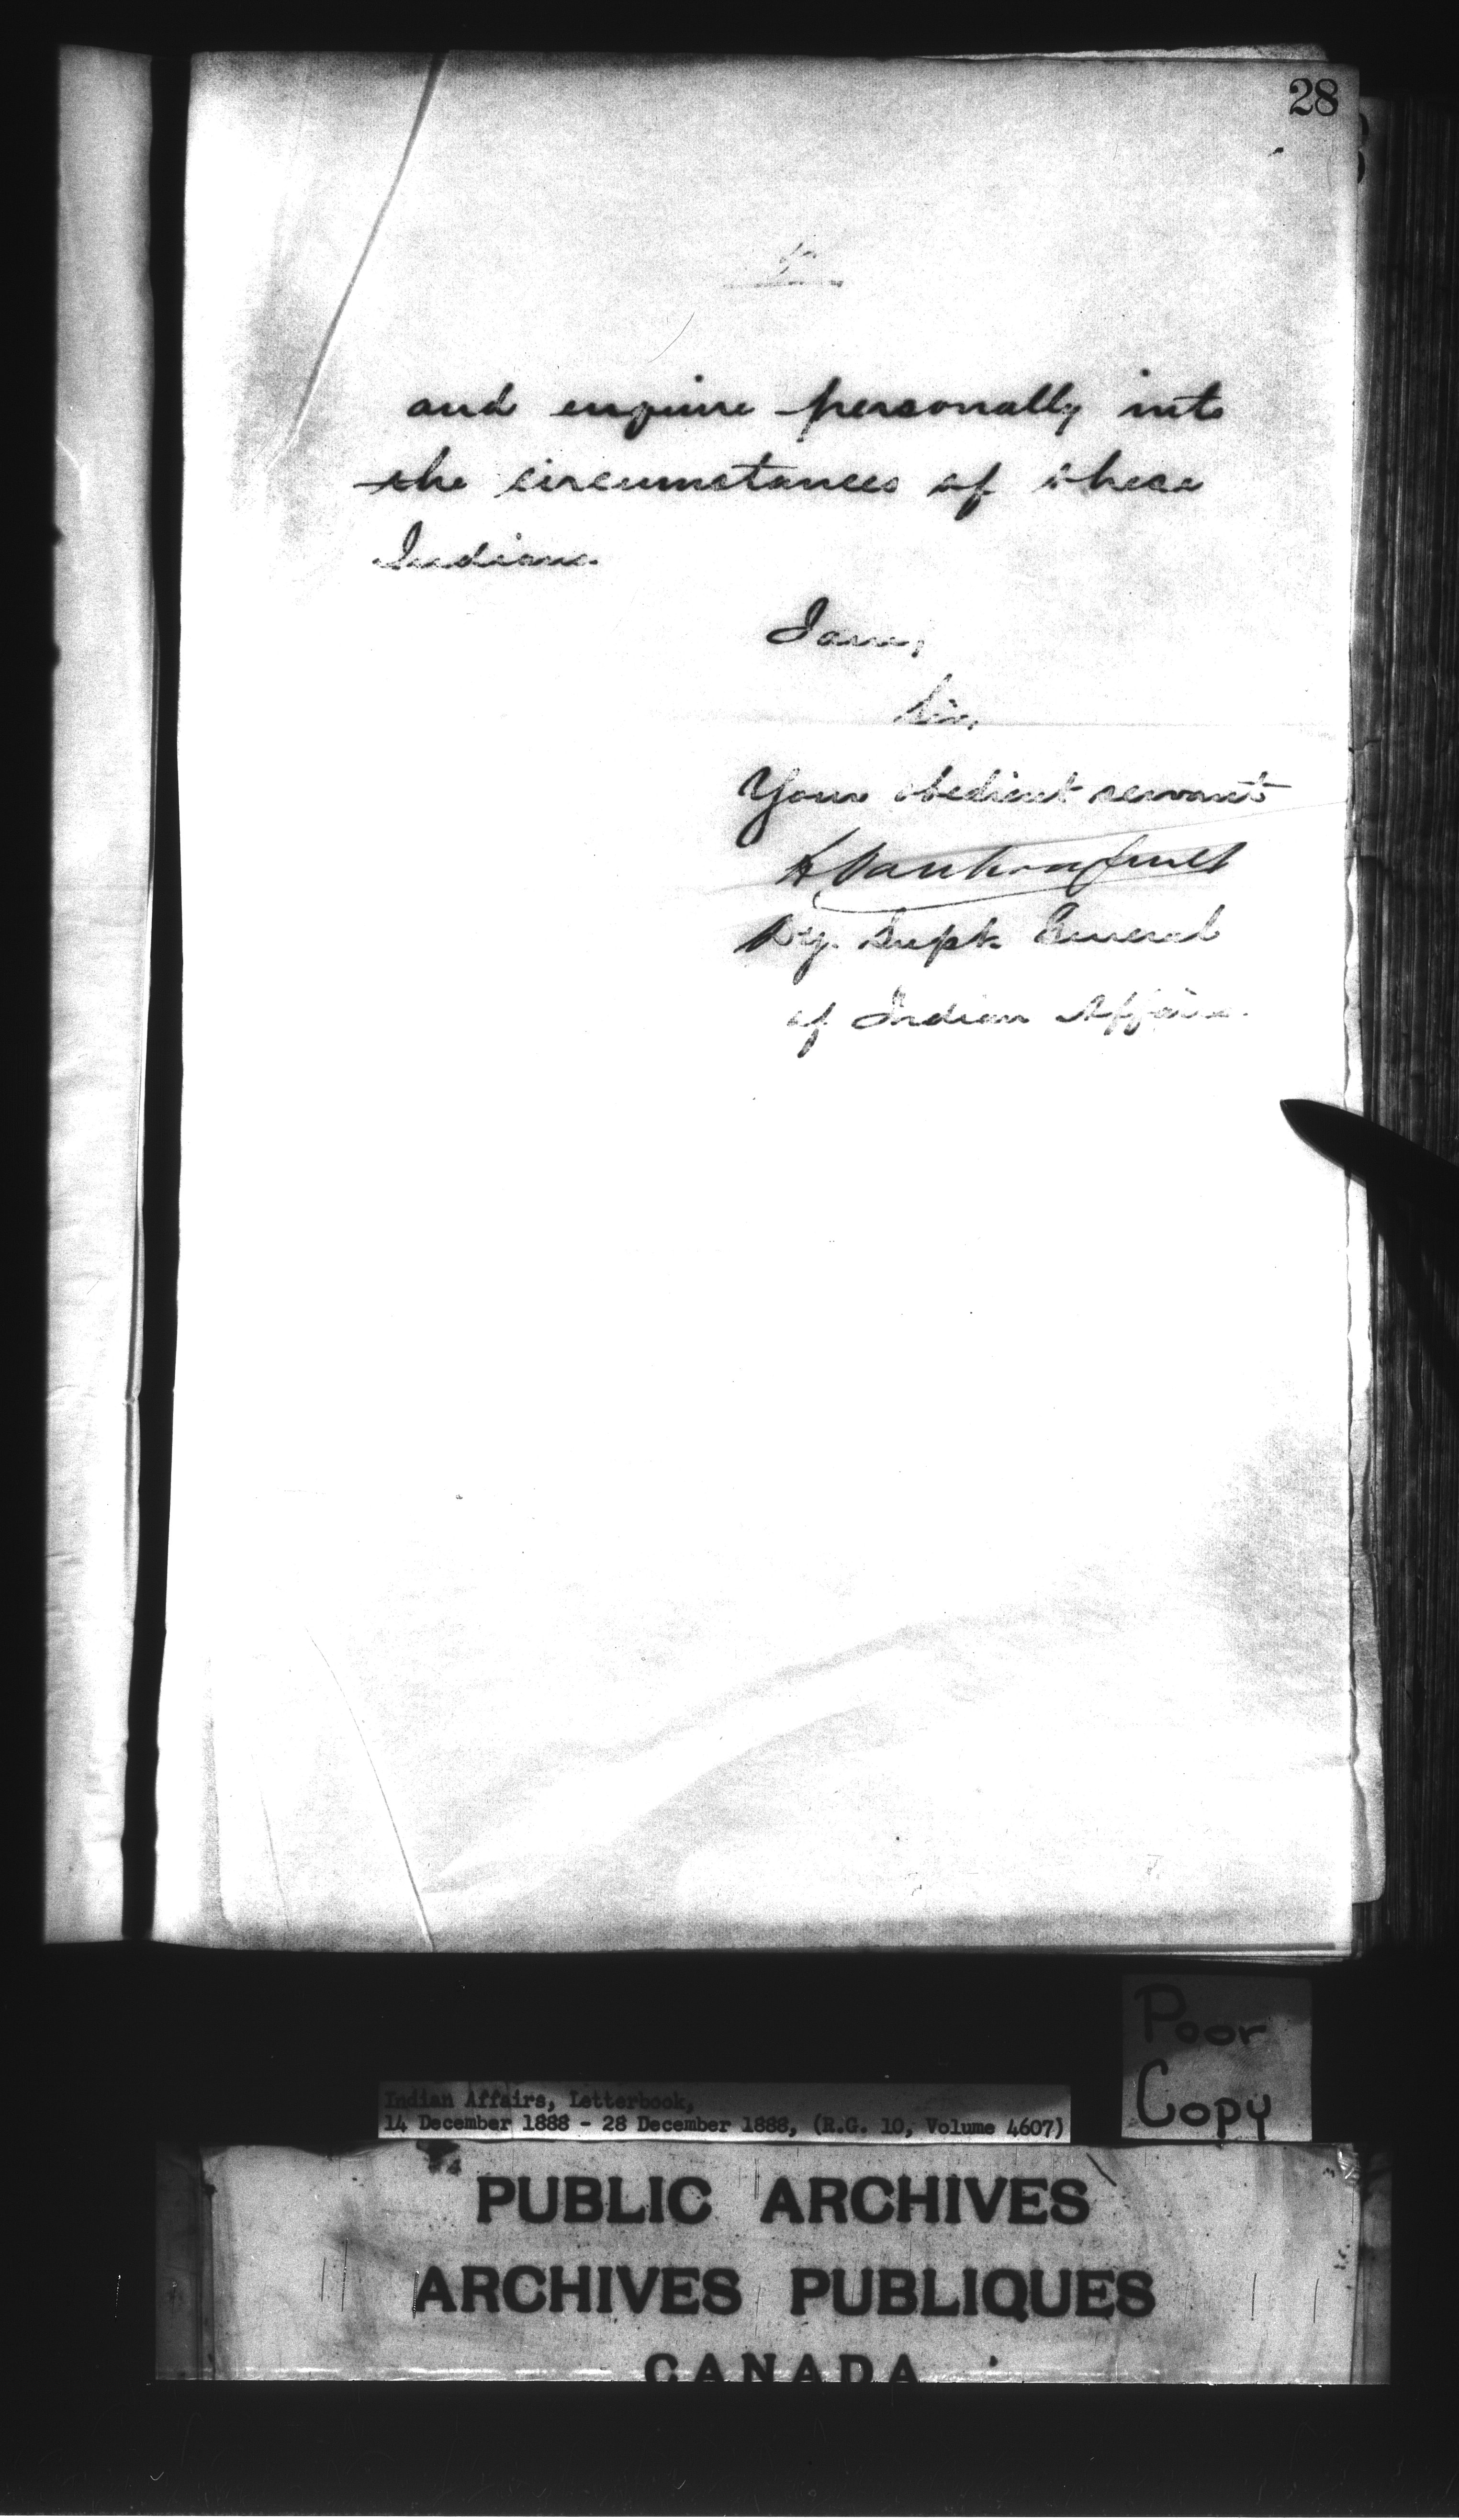 28
and enquire personally into
the circumstances of these
Indians.
I am,
Sir,
Your obedient servant
L Vankoughnet
Dy. Supt. General
of Indian Affairs.
Poor
Copy
Indian Affairs, Letterbook,
14 December 1888 - 28 December 1888, (R.G. 10, Volume 4607)
PUBLIC ARCHIVES
ARCHIVES PUBLIQUES
CANADA